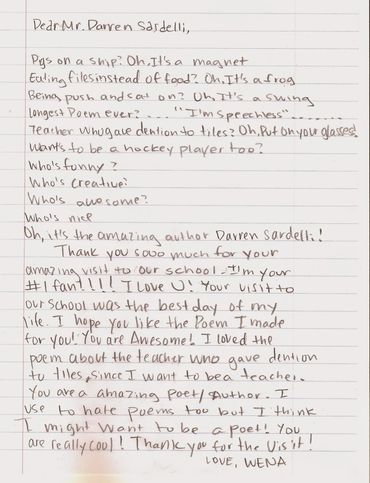 Dear Mr. Darren Sardelli,
Pgs on a ship? Oh, It's a magnet
Eating files instead of food? Oh, It's a frog
Being push and sat on? Oh, It's a swing
longest Poem ever? .... "I'm speechless"........
Teacher who gave dention to tiles? Oh, Put on your glasses!
Wants to be a hockey player too?
Who's funny?
Who's creative?
Who's awesome?
Who's nice
Oh, it's the amazing author Darren Sardelli!
Thank you sooo much for your
amazing visit to our school. I'm your
#1 fan!!!! I love U! Your visit to
our school was the best day of my
life. I hope you like the Poem I made
for you! You are Awesome! I loved the
poem about the teacher who gave dention
to tiles, since I want to be a teacher.
You are a amazing poet/author. I
use to hate poems too but I think
I might want to be a poet! You
are really cool! Thank you for the visit!
LOVE, WENA